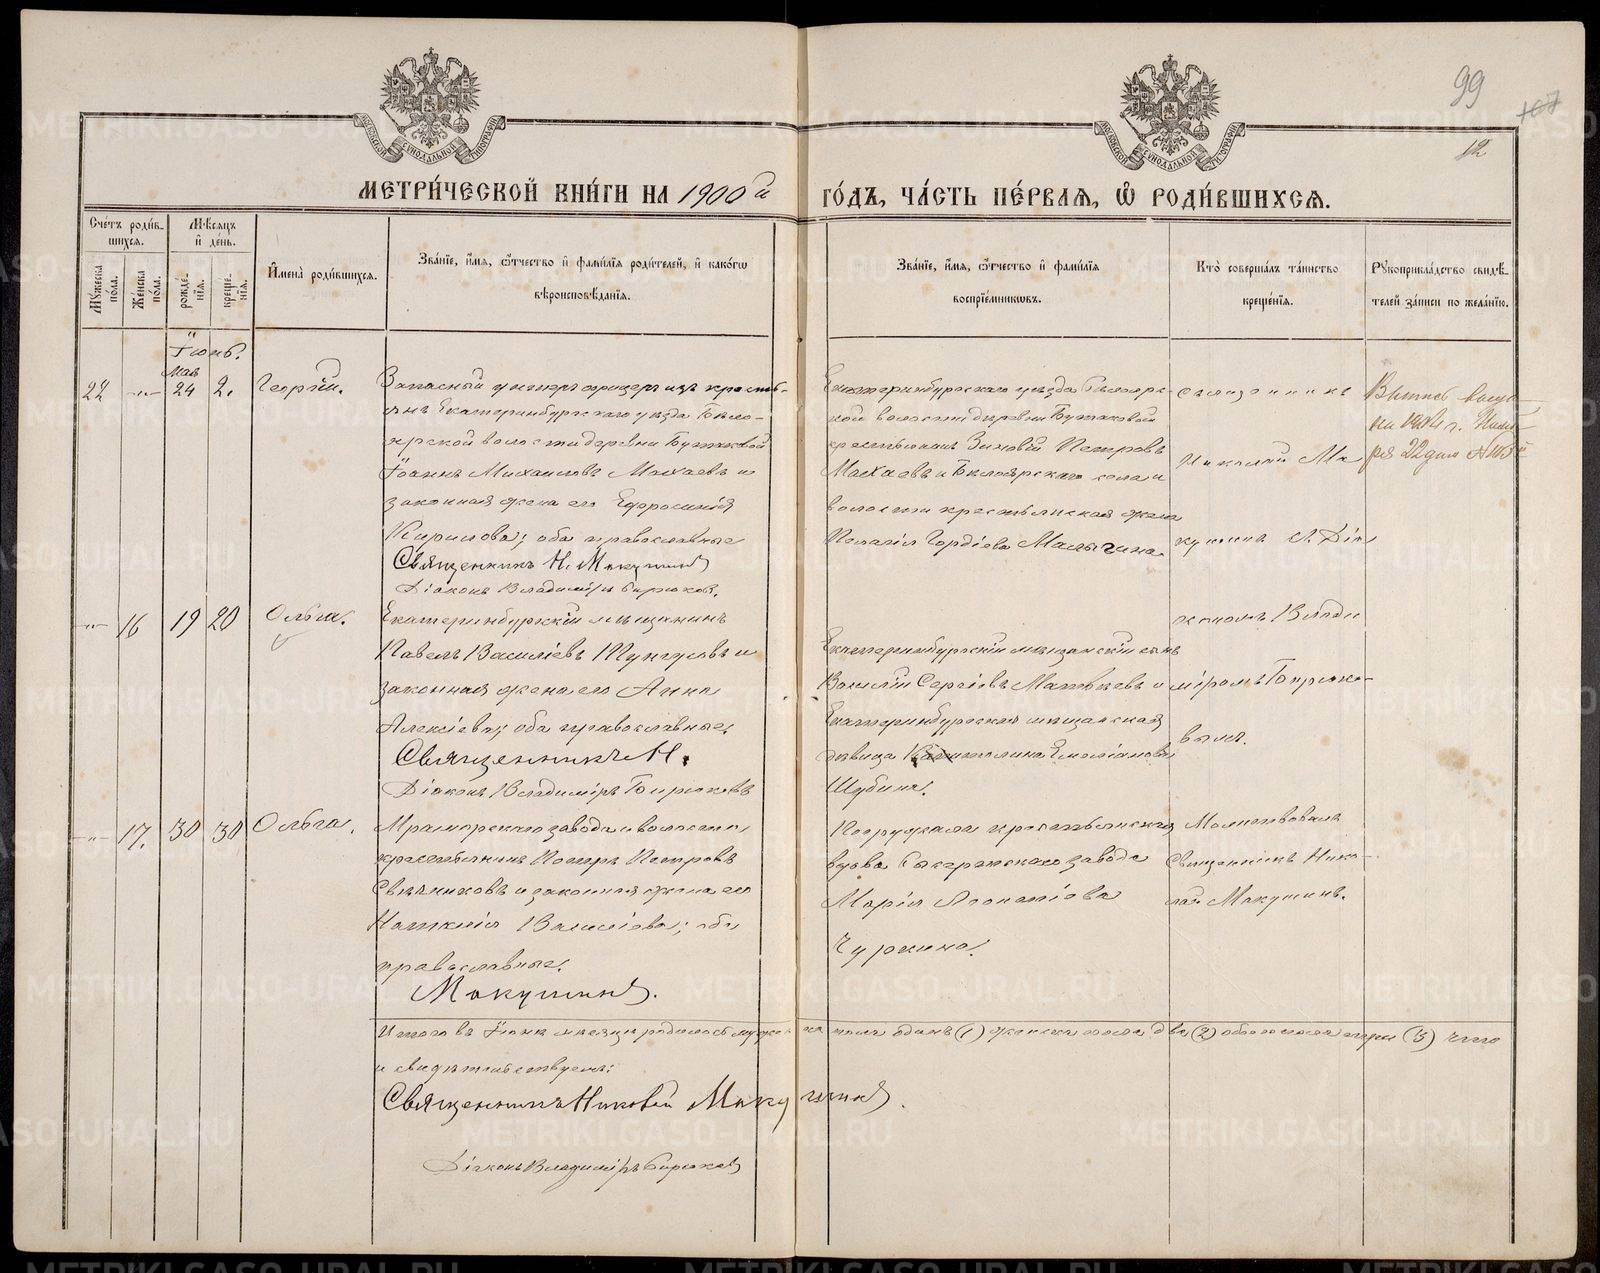 99
107
12
МЕТРИЧЕСКОЙ КНИГИ НА 1900й ГОДЪ, ЧАСТЬ ПЕРВАЯ, Ѿ РОДИВШИХСЯ.
Счетъ родившихся.
Мужеска пола.
Женска пола.
Мѣсяцъ и день.
рожденія.
крещенія.
Имена родившихся.
Званіе, имя, отчество и фамилія родителей, и какогѡ вѣроисповѣданія.
Званіе, имя, отчество и фамилія воспріемниковъ.
Кто совершалъ таинство крещенія.
Рукоприкладство свидѣтелей записи по желанію.
Їюнь.
Мая
22 24 2. Георгій.
Запасный унтеръ офицеръ изъ кресть-
янъ Екатеринбургскаго уѣзда Бѣло-
ярской волости деревни Бутаковой
Їоаннъ Михаиловъ Махаевъ и
законная жена его Ефросинія
Кирилова; оба православные
Священникъ Н. Макушинъ
Діаконъ Владиміръ Бирюковъ.
Екатеринбургскаго уѣзда Бѣлояр-
ской волости деревни Бутаковой
крестьянинъ Зиновій Петровъ
Махаевъ и Бѣлоярскаго села и
волости крестьянская жена
Пелагія Гордіева Малыгина.
Священникъ
Николай Ма
кушинъ с. Діа
кономъ Влади
міромъ Бирюко-
вымъ.
16 19 20 Ольга.
Екатеринбургскій мѣщанинъ
Павелъ Василіевъ и
законная жена его Анна
Алексіева; оба православные.
Священникъ Н.
Діаконъ Владиміръ Бирюковъ
Екатеринбургскій мѣщанскій сынъ
Василій Сергіевъ Матвѣевъ и
Екатеринбургская мѣщанская
дѣвица Капитолина Емеліанова
Шубина.
17. 30 30 Ольга.
Мраморскаго завода и волости
крестьянинъ Петръ Петровъ
Свѣчниковъ и законная жена его
Наталія Василіева; оба
православные.
Макушинъ.
Погружала крестьянская
вдова Сысертскаго завода
Марія
Чуркина.
Молитвовалъ
Священникъ Нико-
лай Макушинъ.
Итого въ Їюнѣ мѣсяцѣ родилось мужеска пола одинъ (1) женска пола два (2) обоего пола три (3) что
и свидѣтельствуемъ:
Священникъ Николай Макушинъ.
Діаконъ Владиміръ Бирюковъ
METRIKI.GASO-URAL.RU